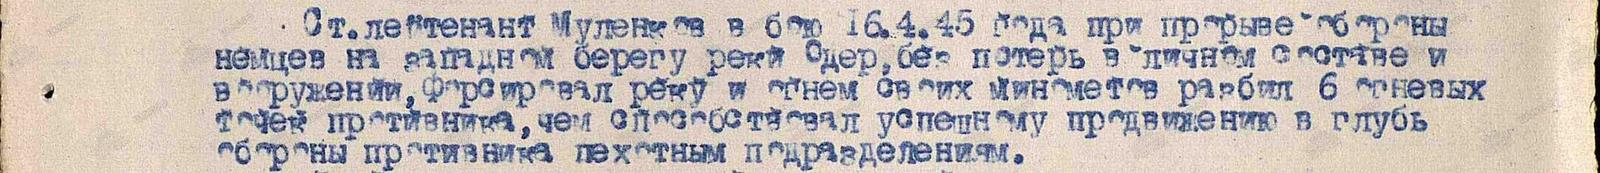 Ст.лейтенант Муленков в бою 16.4.45 года при прорыве обороны
немцев на западном берегу реки Одер,без потерь в личном составе и
вооружении,форсировал реку и огнем своих минометов разбил 6 огневых
точек противника,чем способствовал успешному продвижению в глубь
обороны противника пехотным подразделениям.